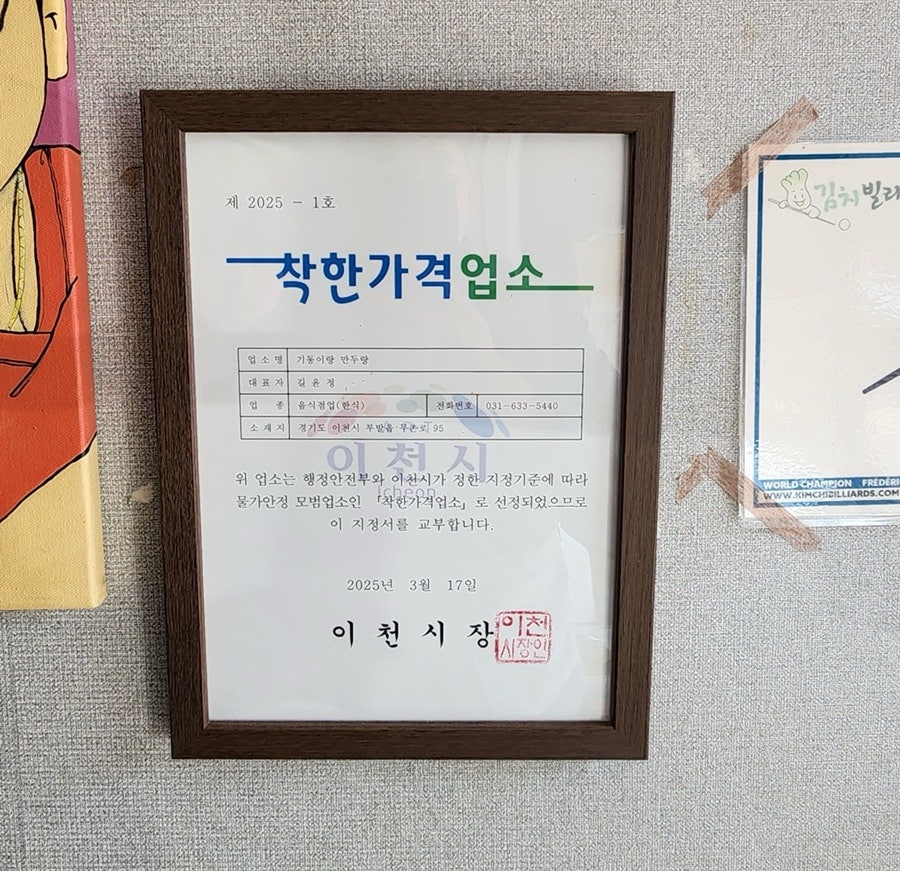 제 2025 - 1호
착한가격업소
업 소 명 기동이랑 만두랑
대 표 자 길 윤 정
업 종 음식점업(한식) 전화번호 031-633-5440
소 재 지 경기도 이천시 부발읍 무촌로 95
이천시
Icheon
위 업소는 행정안전부와 이천시가 정한 지정기준에 따라
물가안정 모범업소인 「착한가격업소」로 선정되었으므로
이 지정서를 교부합니다.
2025년 3월 17일
이 천 시 장
이천
시장인
김치빌
WORLD CHAMPION
WWW.KIMCHIBILLIARDS.COM